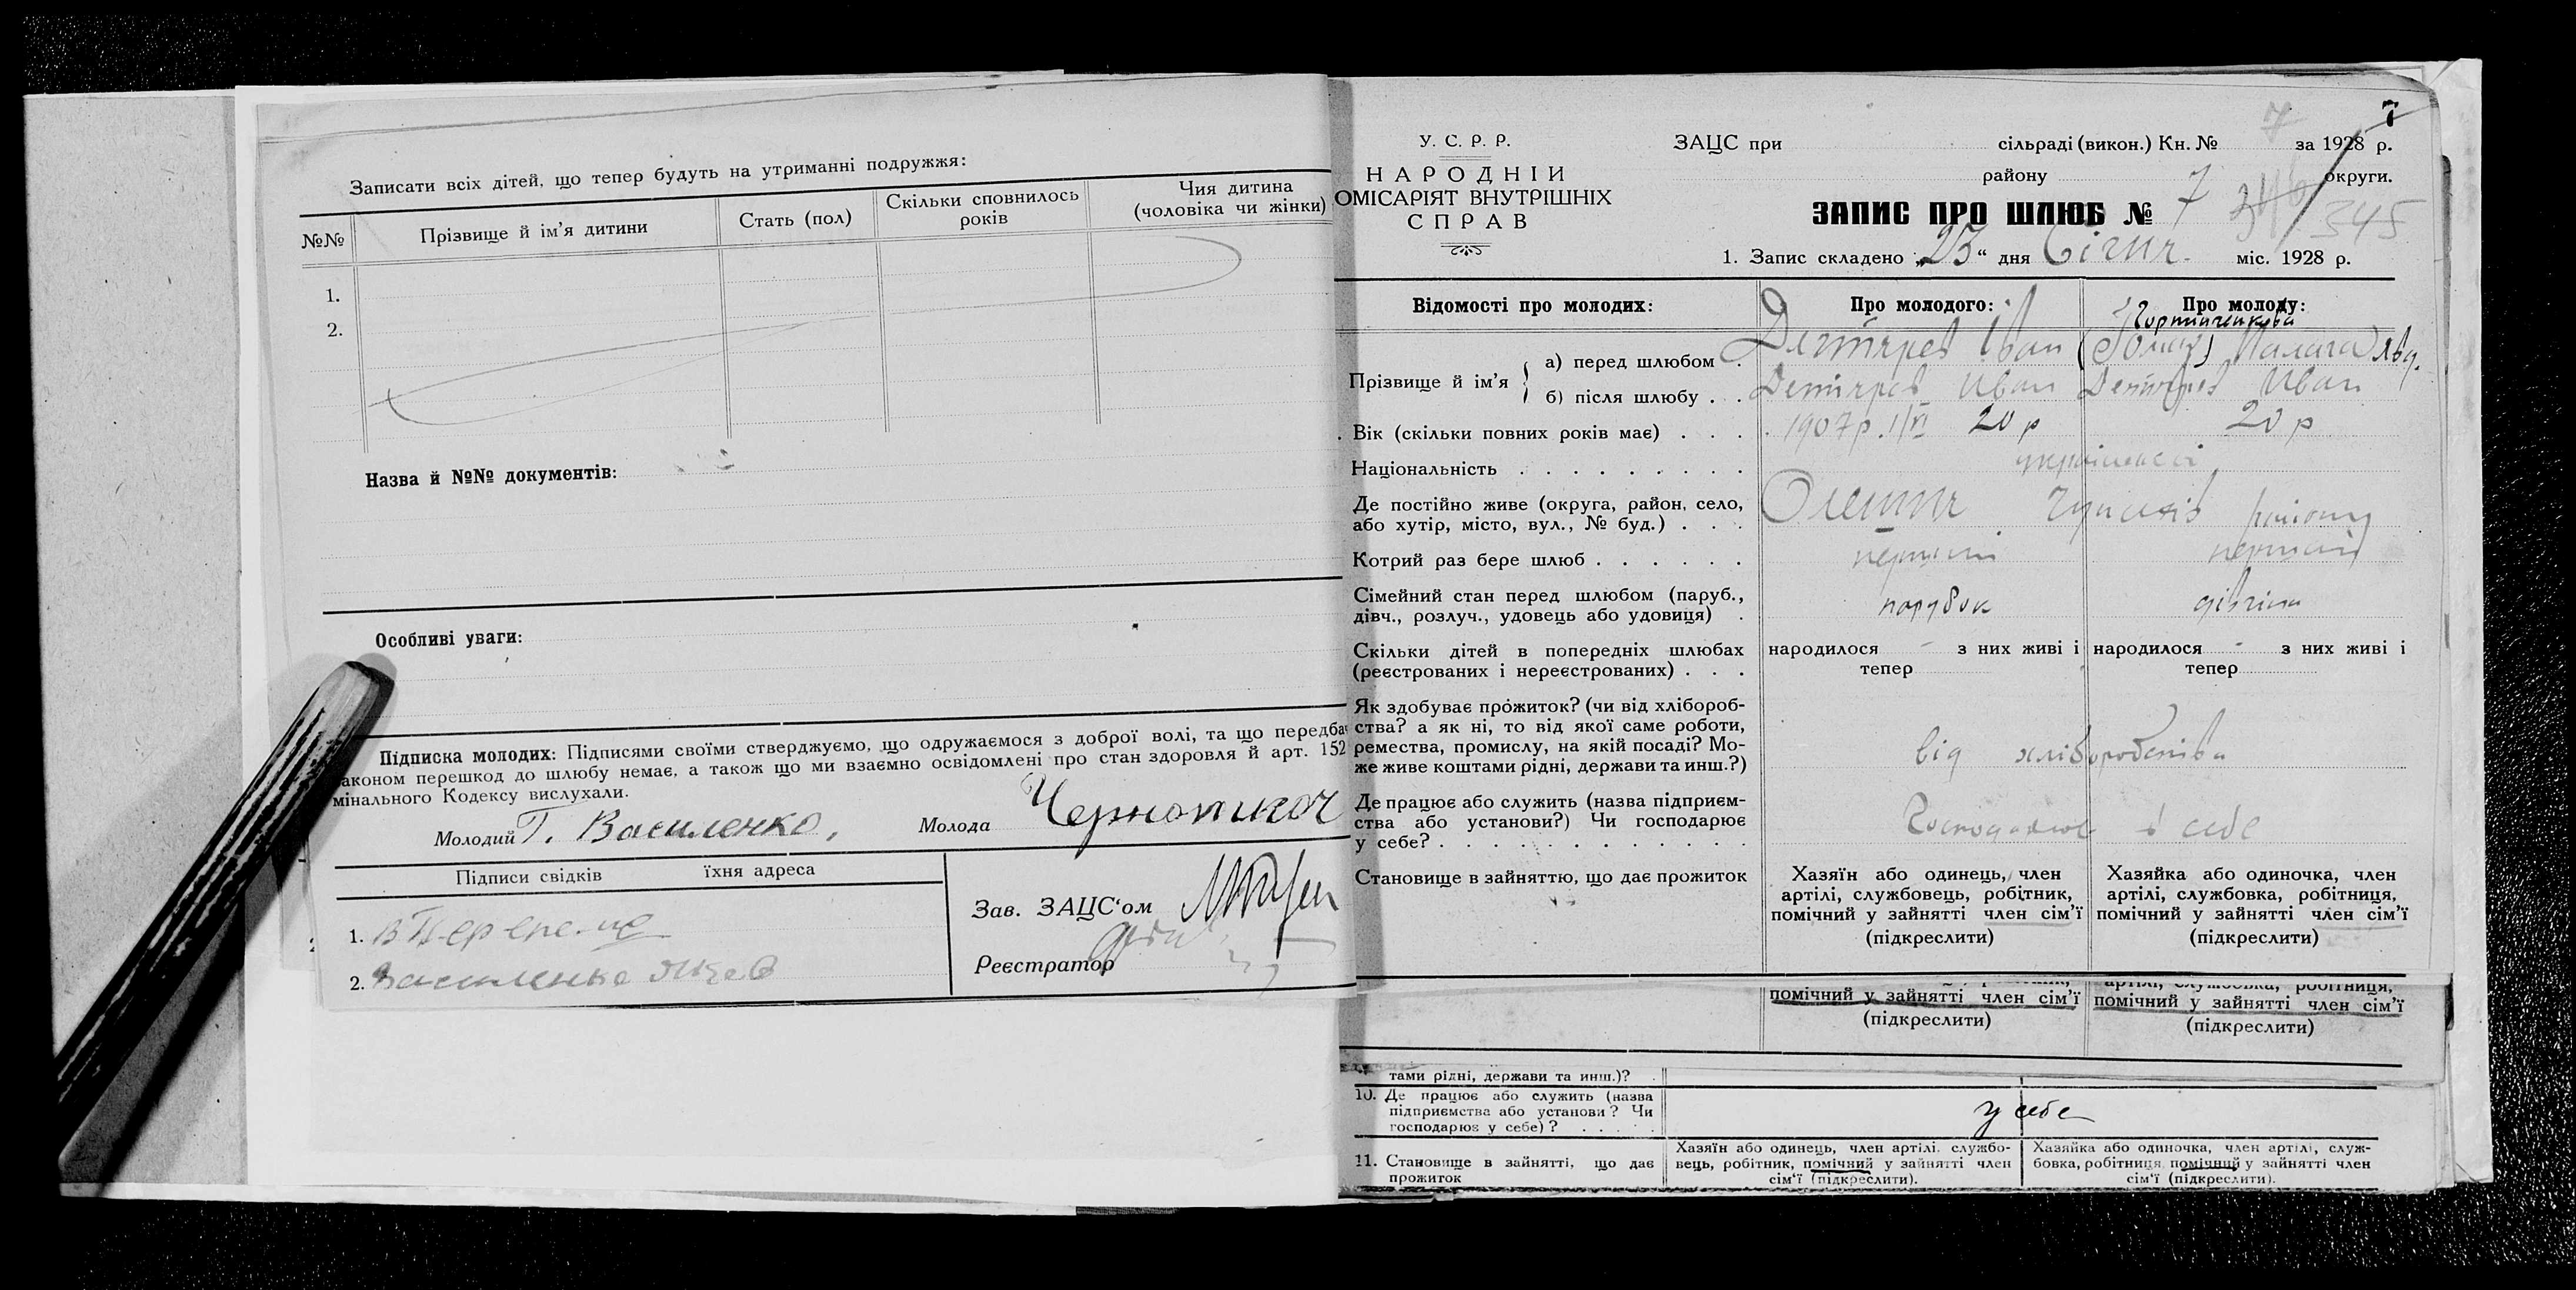 Записати всіх дітей, що тепер будуть на утриманні подружжя:
№№
Прізвище й ім'я дитини
Стать (пол)
Скільки сповнилось
років
Чия дитина
(чоловіка чи жінки)
1.
2.
Назва й №№ документів:
Особливі уваги:
Підписка молодих: Підписями своїми стверджуємо, що одружаємося з доброї волі, та що передба
законом перешкод до шлюбу немає, а також що ми взаємно освідомлені про стан здоровля й арт. 152
мінального Кодексу вислухали.
Молодий Г. Василенко,
Молода
Підписи свідків
їхня адреса
1.
2. Василенко
Зав. ЗАЦС'ом
Реєстратор
У. С. Р. Р.
НАРОДНІЙ
ОМІСАРІЯТ ВНУТРІШНІХ
СПРАВ
7
7
ЗАЦС при сільраді (викон.) Кн. № за 1928 р.
району округи.
ЗАПИС ПРО ШЛЮБ № 7
345
1. Запис складено „23“ дня Січня міс. 1928 р.
Відомості про молодих:
Про молодого:
Про молоду:
Прізвище й ім'я
а) перед шлюбом
Дегтярев Іван
б) після шлюбу
Дегтярев Иван
Дегтярев Иван
Вік (скільки повних років має)
1907р. 1/VI 20 р
20 р
Національність
українські
Де постійно живе (округа, район, село,
або хутір, місто, вул., № буд.)
району
Котрий раз бере шлюб
перший
перший
Сімейний стан перед шлюбом (паруб.,
дівч., розлуч., удовець або удовиця)
парубок
дівчина
Скільки дітей в попередніх шлюбах
(реєстрованих і нереєстрованих)
народилося - з них живі і
тепер
народилося - з них живі і
тепер
Як здобуває прожиток? (чи від хлібороб-
ства? а як ні, то від якої саме роботи,
ремества, промислу, на якій посаді? Мо-
же живе коштами рідні, держави та инш.?)
від хліборобства
Де працює або служить (назва підприєм-
ства або установи?) Чи господарює
у себе?
Господарює в себе
Становище в зайняттю, що дає прожиток
Хазяїн або одинець, член
артілі, службовець, робітник,
помічний у зайнятті член сім'ї
(підкреслити)
Хазяйка або одиночка, член
артілі, службовка, робітниця,
помічний у зайнятті член сім'ї
(підкреслити)
помічний у зайнятті член сім'ї
(підкреслити)
артілі, службовка, робітниця,
помічний у зайнятті член сім'ї
(підкреслити)
тами рідні, держави та инш.)?
10. Де працює або служить (назва
підприємства або установи? Чи
господарює у себе)?
у себе
11. Становище в зайнятті, що дає
прожиток
Хазяїн або одинець, член артілі, службо-
вець, робітник, помічний у зайнятті член
сім'ї (підкреслити).
Хазяйка або одиночка, член артілі, служ-
бовка, робітниця, помічний у зайнятті член
сім'ї (підкреслити).